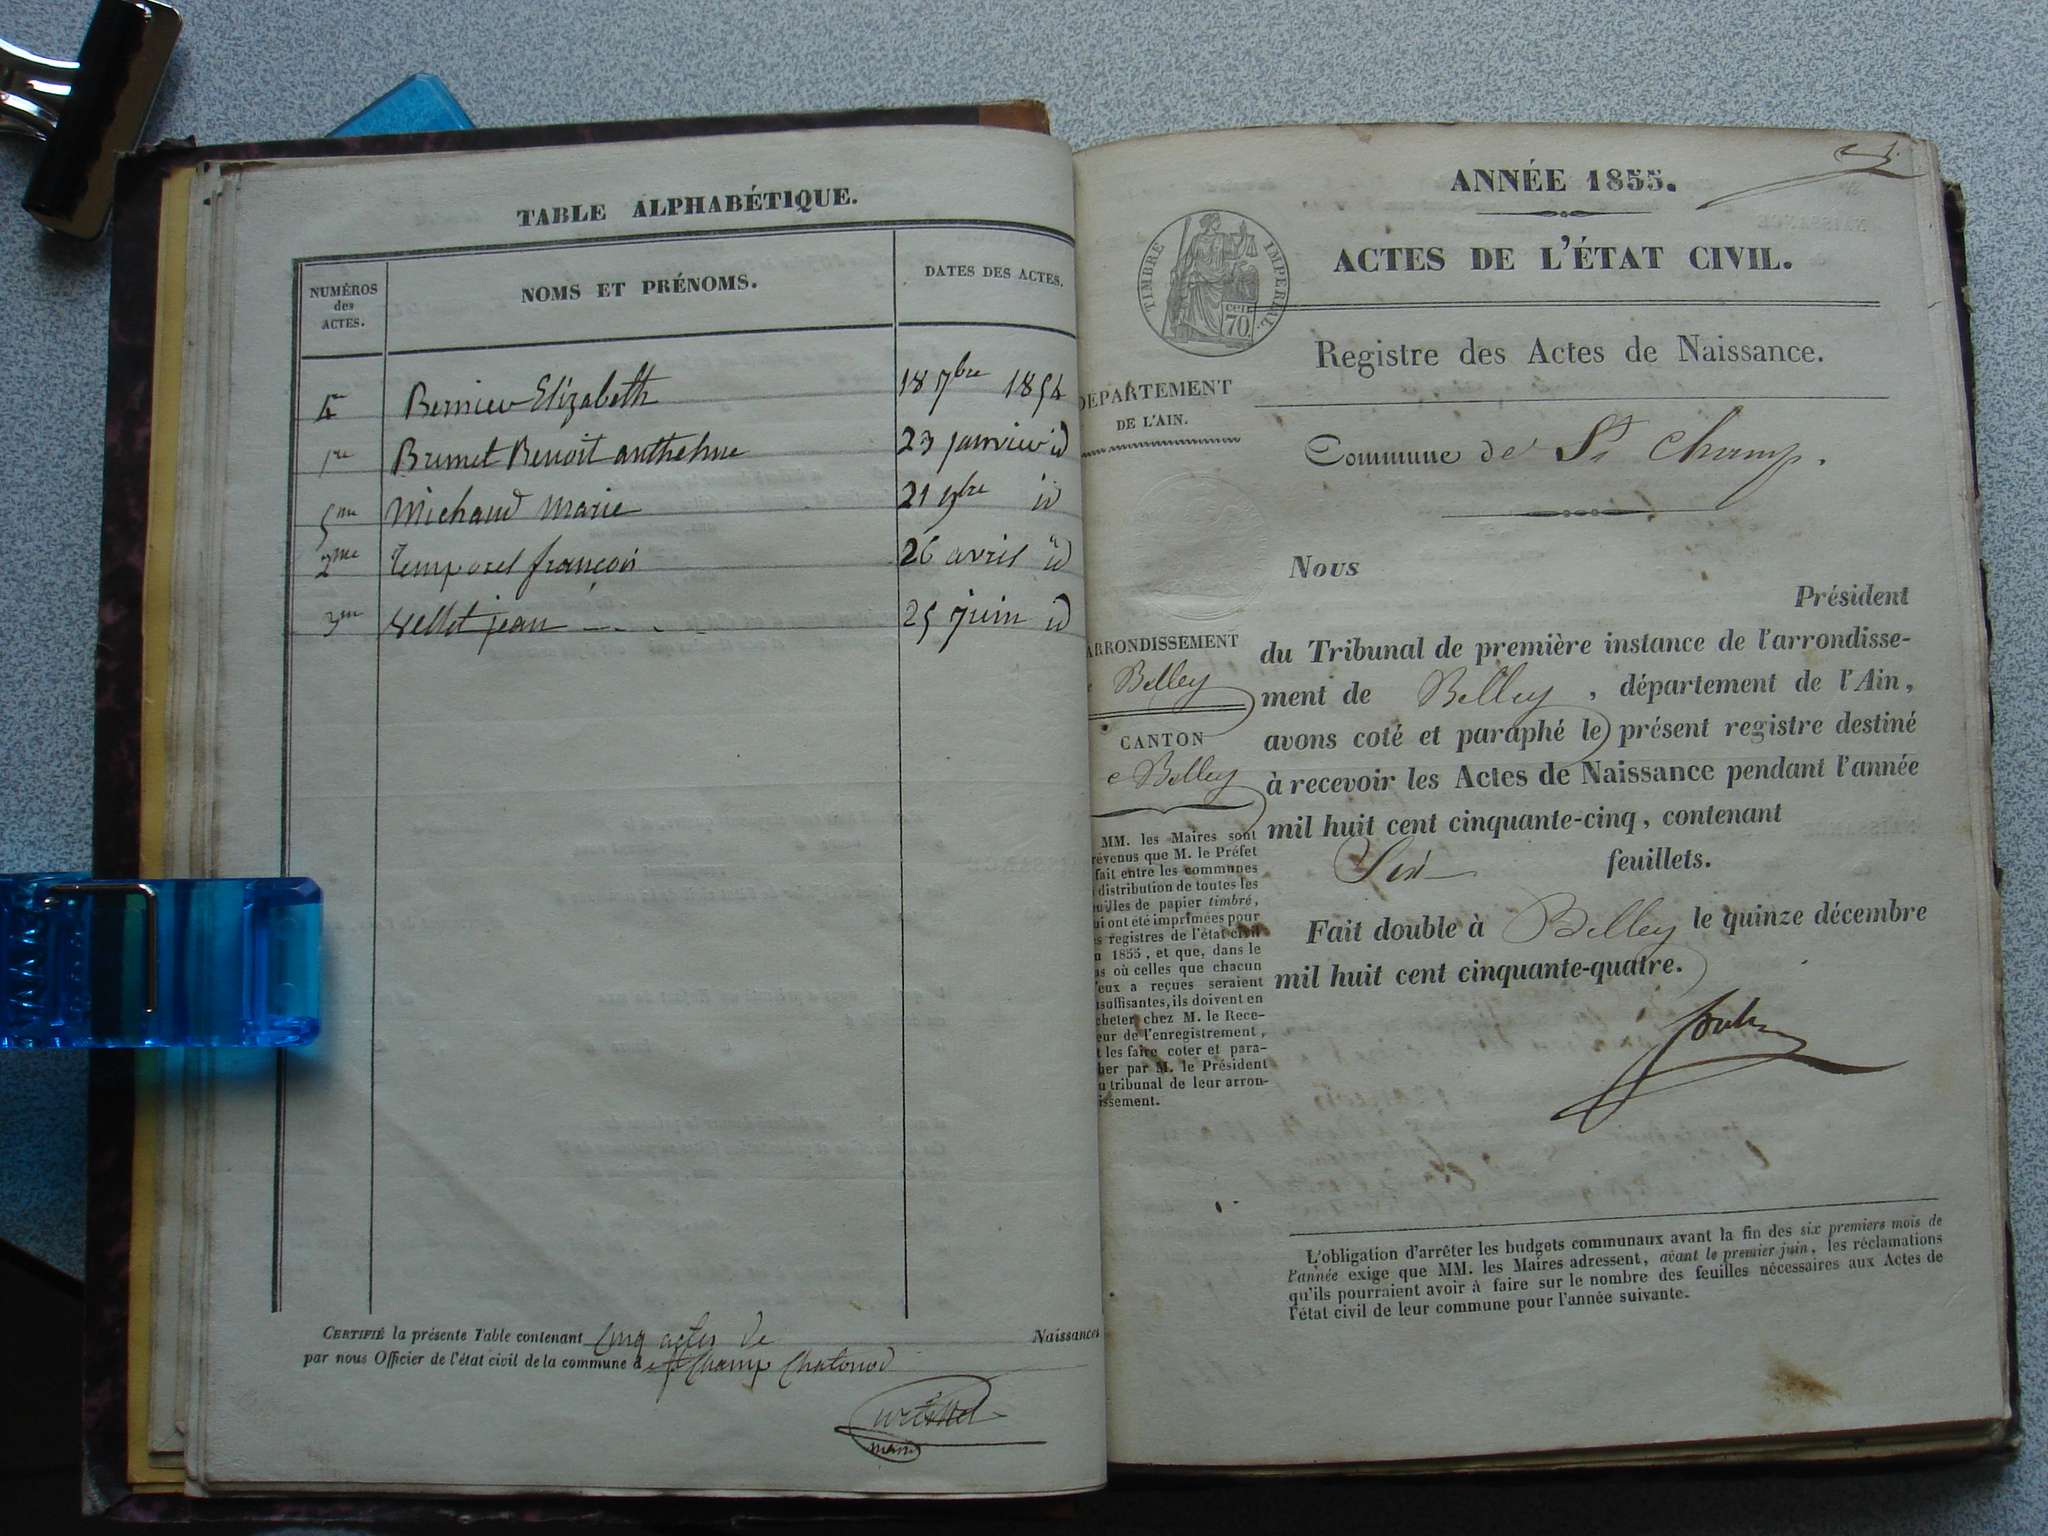 TABLE ALPHABÉTIQUE.
NUMÉROS des ACTES.
NOMS ET PRÉNOMS.
DATES DES ACTES.
4me Bernier Elizabeth 18 7bre 1854
1re Brunet Benoit anthelme 23 janvier id
5me Michaud Marie 21 9bre id
2me Temporel françois 26 avril id
3me Vellet jean 25 juin id
CERTIFIÉ la présente Table contenant Cinq actes de Naissances
par nous Officier de l'état civil de la commune de St Champ Chatonod
maire
ANNÉE 1855.
ACTES DE L'ÉTAT CIVIL.
TIMBRE IMPERIAL
cen 70
Registre des Actes de Naissance.
DÉPARTEMENT
DE L'AIN.
Commune de St Champ.
Nous
Président
du Tribunal de première instance de l'arrondisse-
ment de Belley, département de l'Ain,
avons coté et paraphé le présent registre destiné
à recevoir les Actes de Naissance pendant l'année
mil huit cent cinquante-cinq, contenant
Six feuillets.
Fait double à Belley le quinze décembre
mil huit cent cinquante-quatre.
ARRONDISSEMENT
Belley
CANTON
e Belley
MM. les Maires sont
révenus que M. le Préfet
fait entre les communes
distribution de toutes les
uilles de papier timbré,
ui ont été imprimées pour
es registres de l'état civil
n 1855, et que, dans le
as où celles que chacun
'eux a reçues seraient
nsuffisantes, ils doivent en
cheter chez M. le Rece-
eur de l'enregistrement,
t les faire coter et para-
her par M. le Président
u tribunal de leur arron-
issement.
L'obligation d'arrêter les budgets communaux avant la fin des six premiers mois de
l'année exige que MM. les Maires adressent, avant le premier juin, les réclamations
qu'ils pourraient avoir à faire sur le nombre des feuilles nécessaires aux Actes de
l'état civil de leur commune pour l'année suivante.